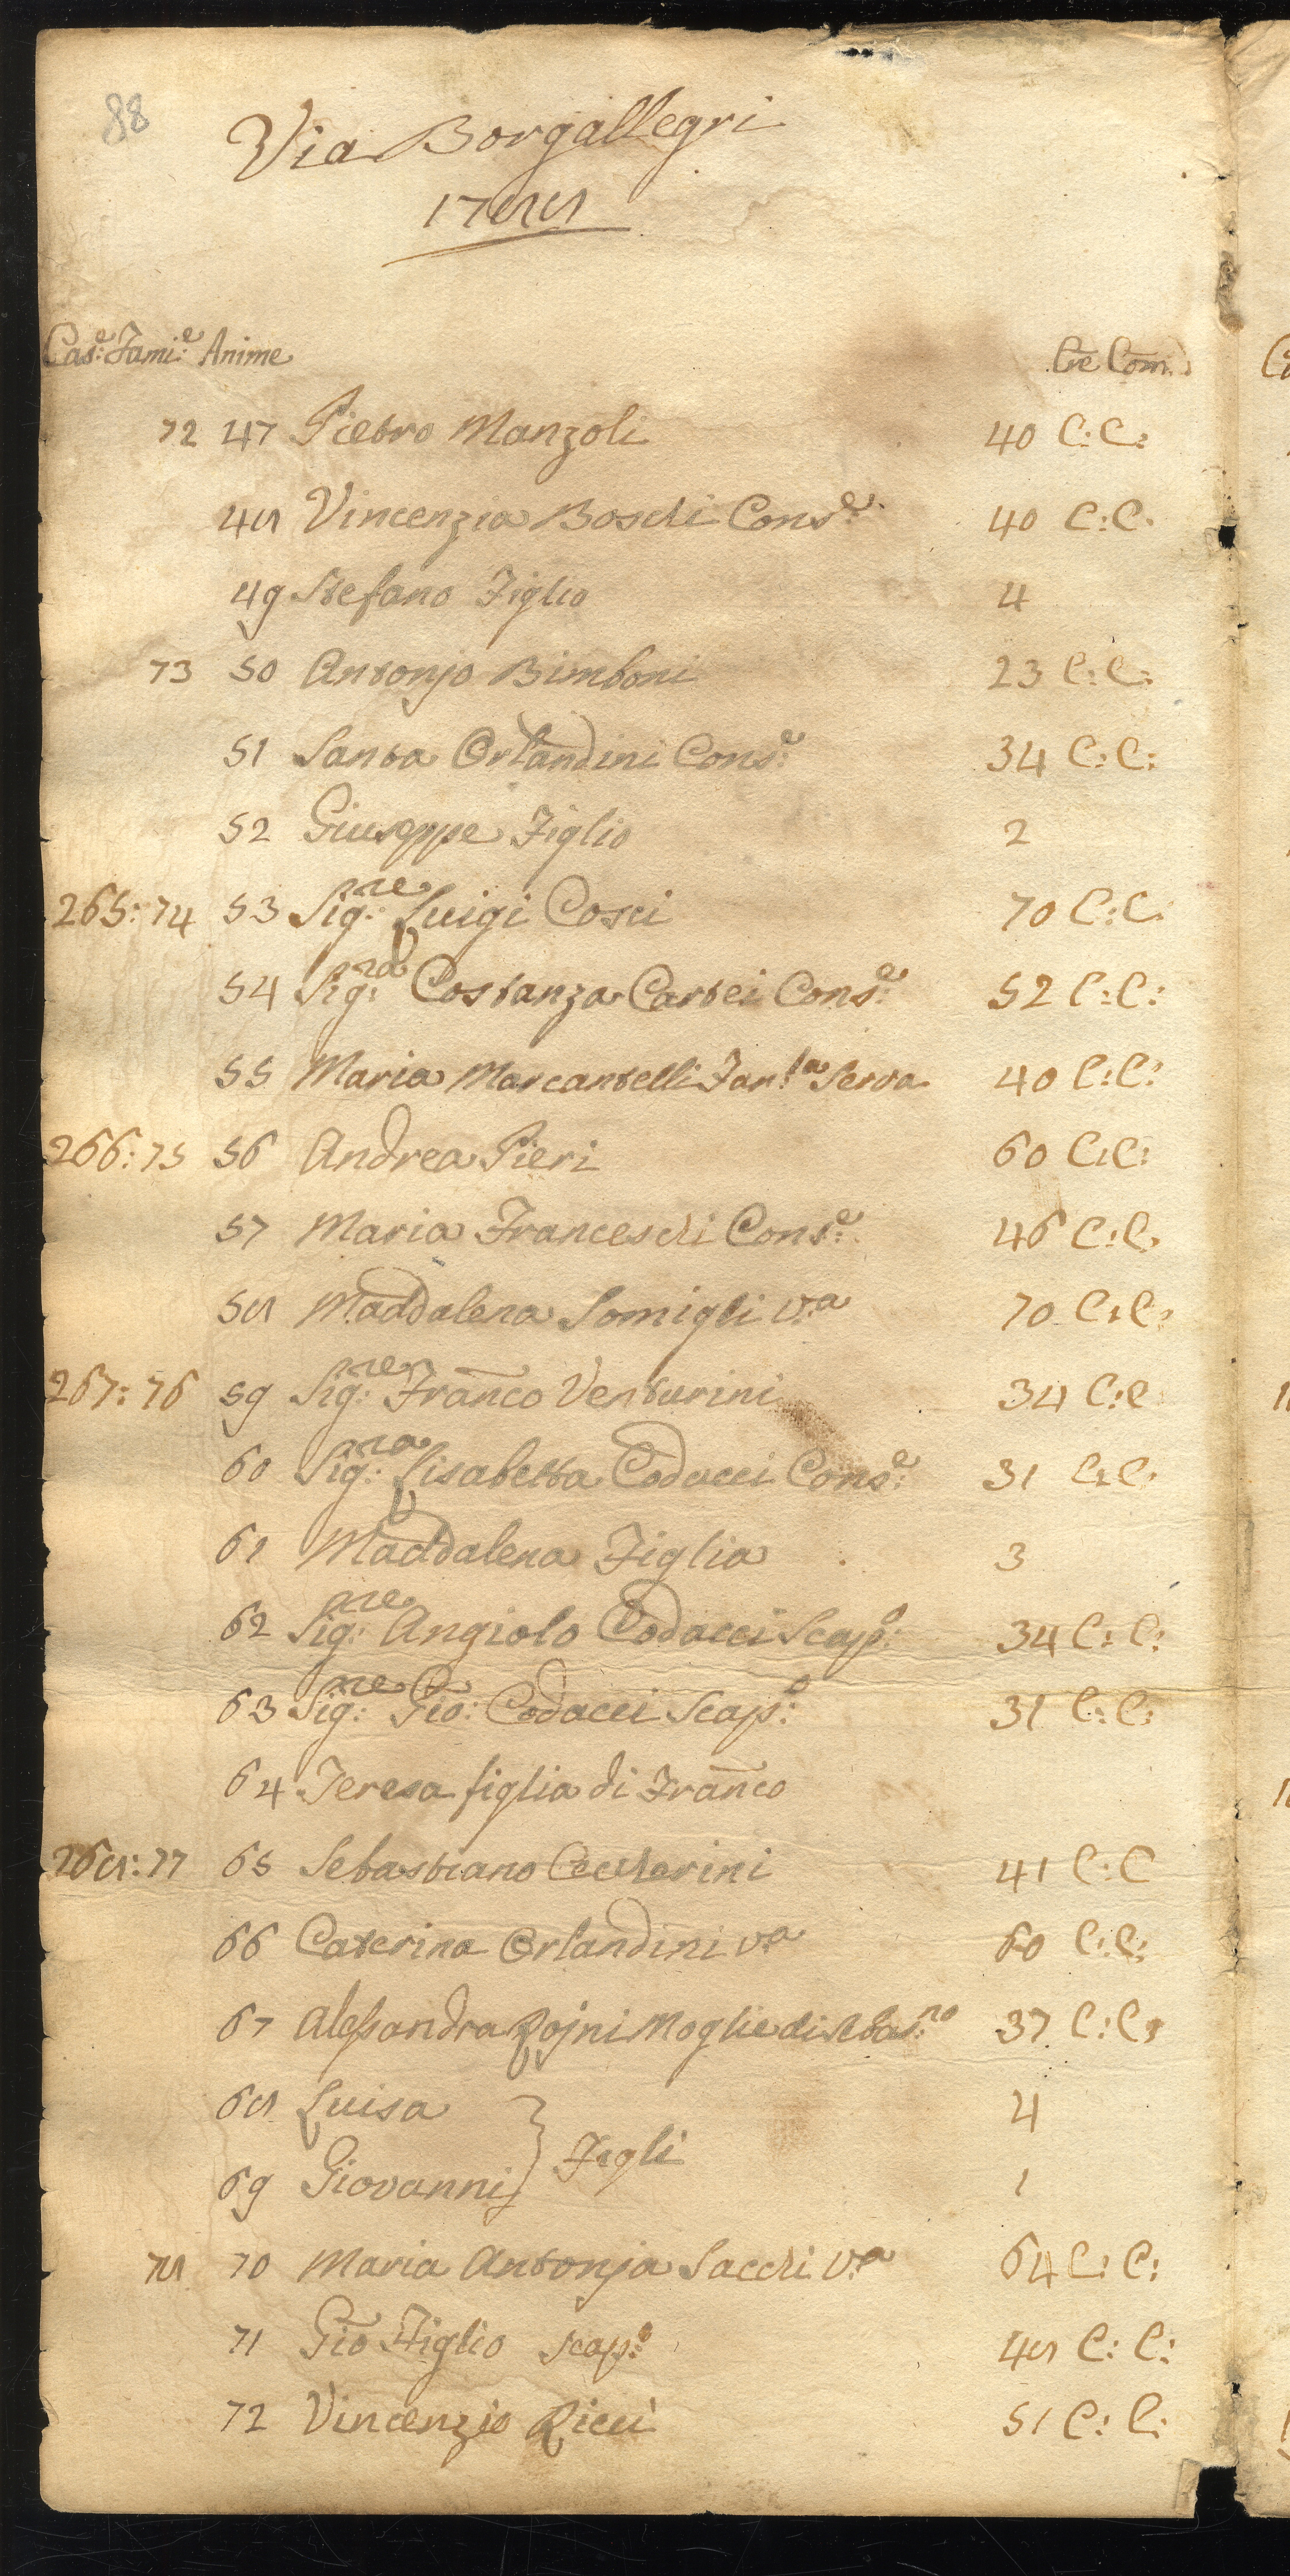 88
Via Borgallegri
1788
Cas:e Fami:e Anime Cre Com:
72 47 Pietro Manzoli 40 C: C:
48 Vincenzia Boschi Cons:e 40 C: C:
49 Stefano Figlio 4
73 50 Antonjo Bimboni 23 C: C:
51 Santa Orlandini Cons:e 34 C: C:
52 Giuseppe Figlio 2
265: 74 53 Sig:re Luigi Cosci 70 C: C:
54 Sig:ra Costanza Cartei Cons:e 52 C: C:
55 Maria Marcantelli Fan:la Serva 40 C: C:
266: 75 56 Andrea Pieri 60 C: C:
57 Maria Franceschi Cons:e 46 C: C:
58 Maddalena Somigli v:a 70 C: C:
267: 76 59 Sig:re Franco Venturini 34 C: C
60 Sig:ra Lisabetta Codacci Cons:e 31 C: C:
61 Maddalena Figlia 3
62 Sig:re Angiolo Codacci Scap:o 34 C: C:
63 Sig:re Gio: Codacci Scap:o 31 C: C:
64 Teresa figlia di Franco
268: 77 65 Sebastiano Ceccherini 41 C: C
66 Caterina Orlandini v:a 60 C: C:
67 Alessandra Rojni Moglie di Sebas:no 37 C: C:
68 Luisa 4
Figli
69 Giovanni 1
78 70 Maria Antonja Sacchi v:a 64 C: C:
71 Gio Figlio scap:o 48 C: C:
72 Vincenzio Ricci 51 C: C: